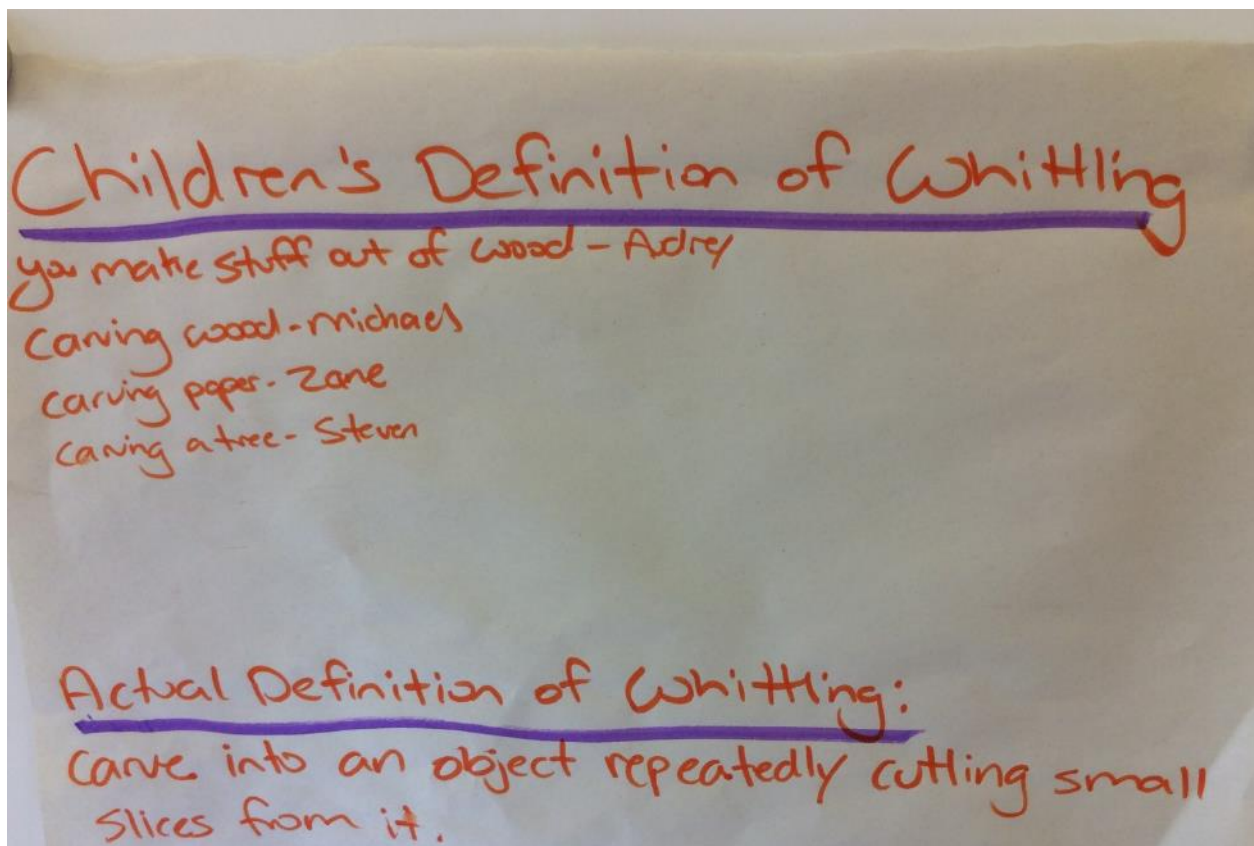 Children's Definition of Whittling
you make stuff out of wood - Adrey
Carving wood - michael
Carving paper - Zane
Carving a tree - Steven
Actual Definition of Whittling:
Carve into an object repeatedly cutting small
slices from it.